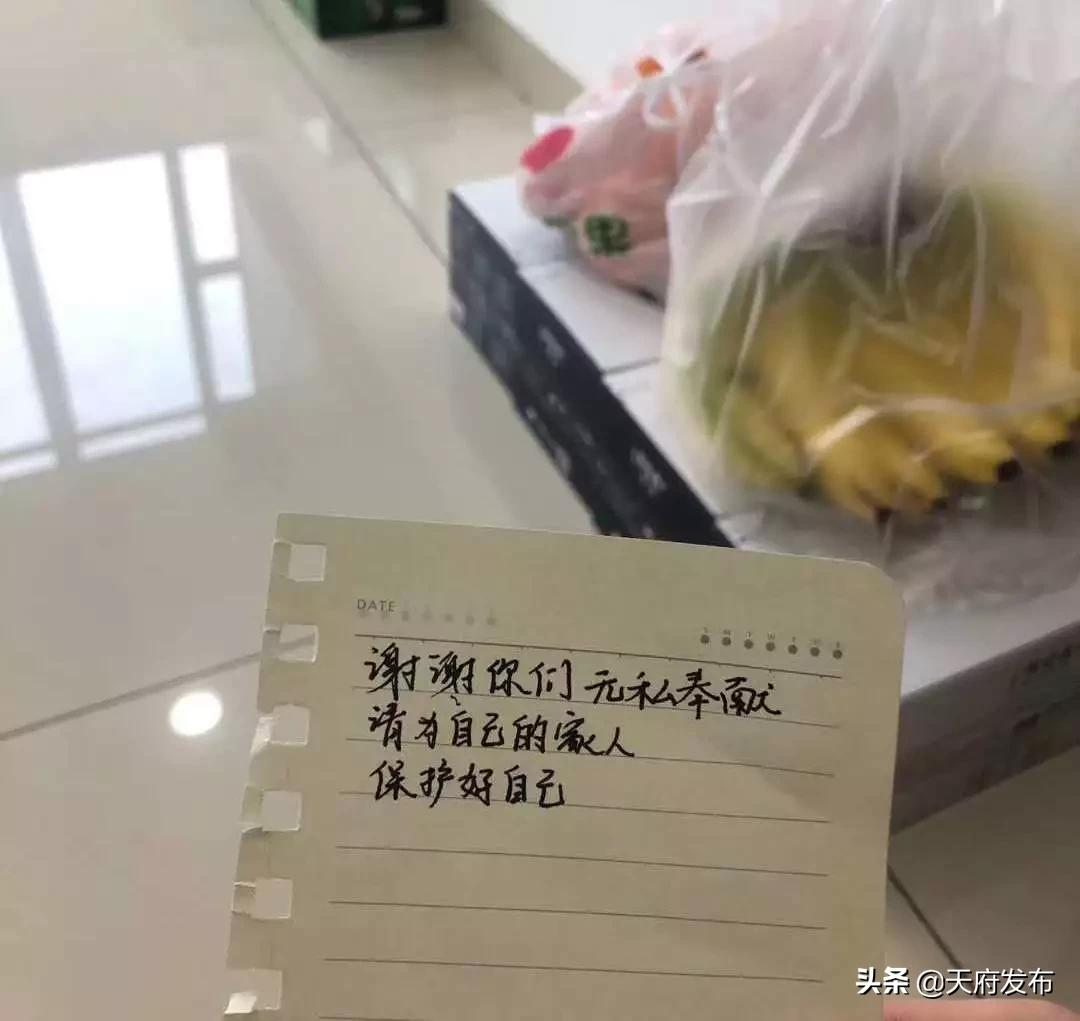 果
DATE
S M T W T F S
谢谢你们无私奉献
请为自己的家人
保护好自己
头条 @天府发布